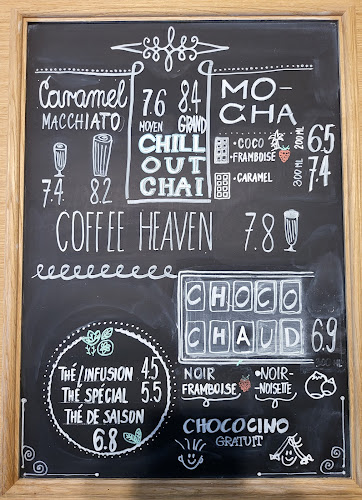 Caramel
MACCHIATO
7.4 8.2
7.6 8.4
MOYEN GRAND
CHILL
OUT
CHAI
MO-
CHA
• COCO
• FRAMBOISE
200 ML 6.5
• CARAMEL
300 ML 7.4
COFFEE HEAVEN 7.8
CHOCO
CHAUD 6.9
300 ML
NOIR •NOIR-
FRAMBOISE -NOISETTE
CHOCOCINO
GRATUIT
THÉ/INFUSION 4.5
THÉ SPÉCIAL 5.5
THÉ DE SAISON
6.8